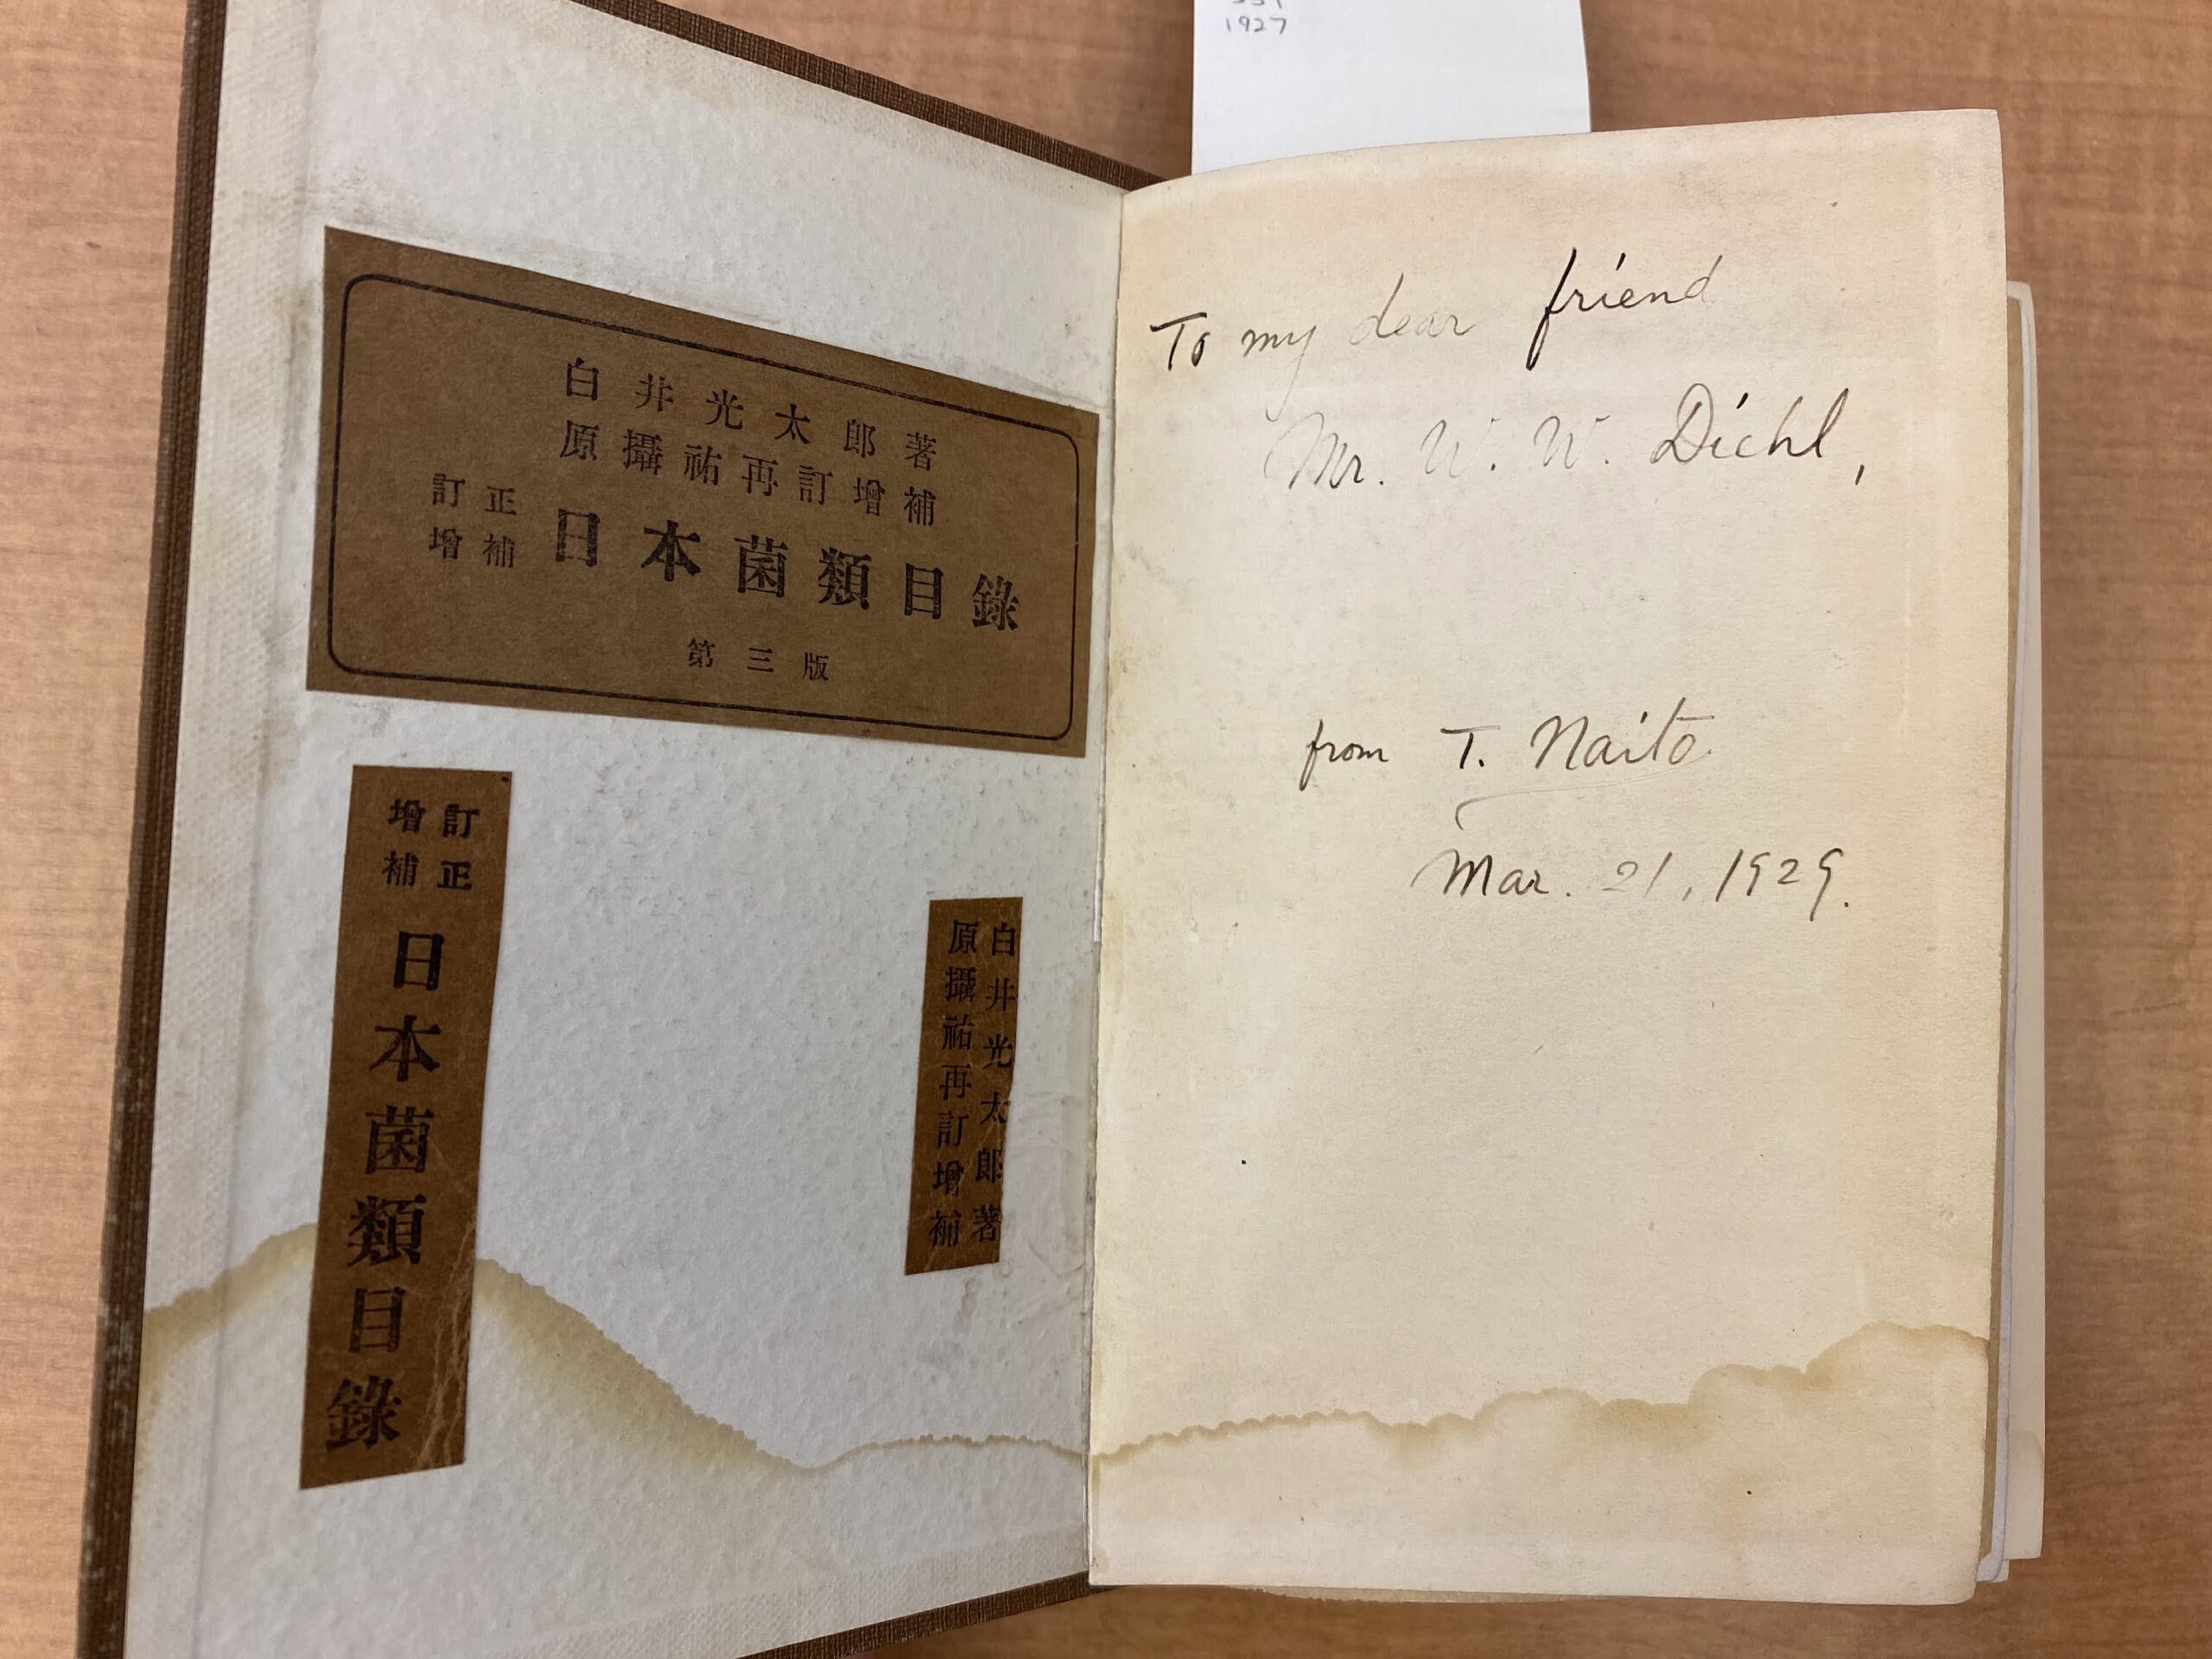 1927
白井光太郎著
原攝祐再訂增補
訂正
增補
日本菌類目錄
第三版
訂正
增補
日本菌類目錄
白井光太郎著
原攝祐再訂增補
To my dear friend
Mr. W. W. Diehl,
from T. Naito
Mar. 21, 1929.